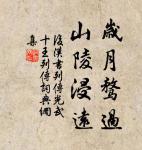 歲月騖過
山陵浸遠
後漢書列傳光武
十王列傳詞典網
集